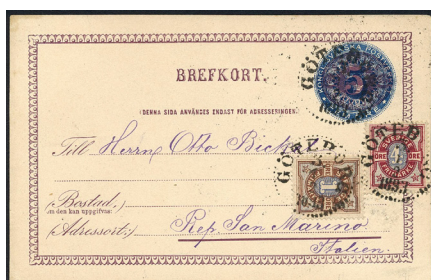 BREFKORT.
(DENNA SIDA ANVÄNDES ENDAST FÖR ADRESSERINGEN.)
Till Herrn Otto Bick
(Bostad,)
om den kan uppgifvas:
(Adressort:)
Rep. San Marino.
Italien.
5
GÖTEBORG
1
GÖTEB
ÖRE 4 ÖRE
FRIMÄRKE